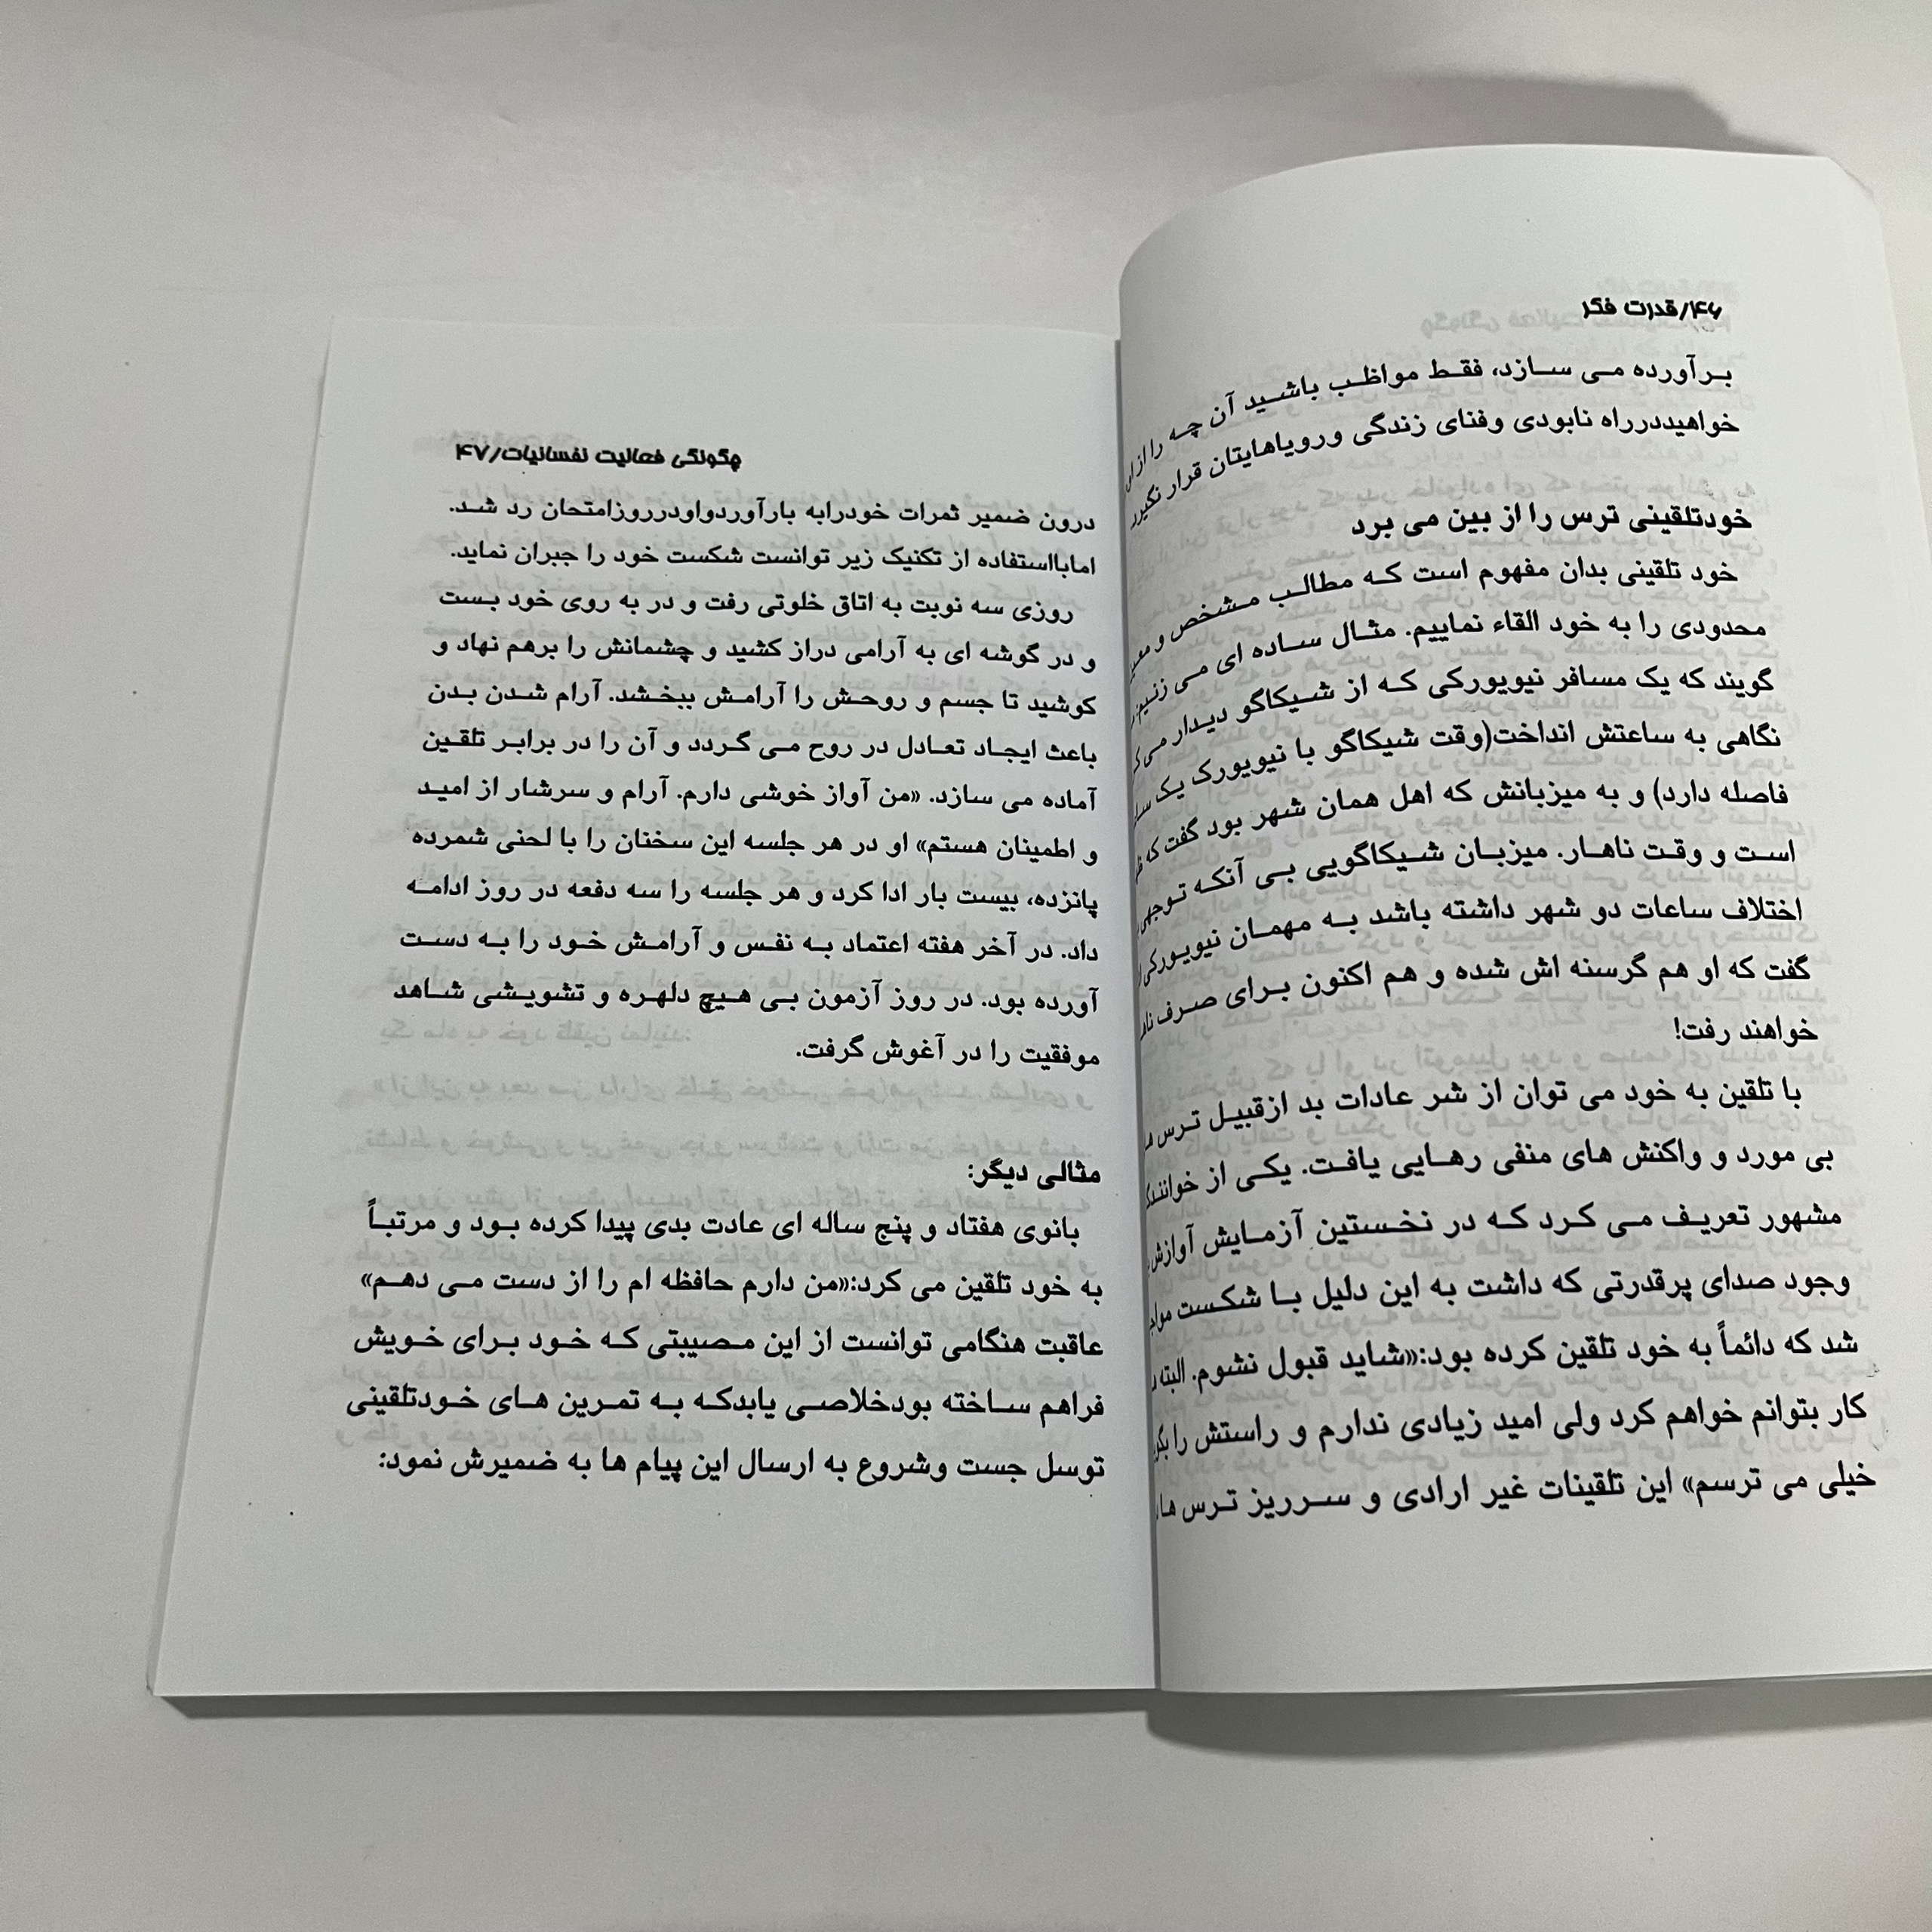 ۴۶/قدرت فکر
بـرآورده مـی سـازد، فقـط مواظـب باشـید آن چـه را از
خواهیددرراه نابودی وفنای زندگی ورویاهایتان قرار نگیرد
خودتلقینی ترس را از بین می برد
خود تلقینی بدان مفهوم است کـه مطالـب مـشخص و
محدودی را به خود القاء نماییم. مثـال سـاده ای مـی زنیم
گویند که یک مسافر نیویورکی کـه از شـیکاگو دیـدار می
نگاهی به ساعتش انداخت(وقت شیکاگو با نیویورک یـک
فاصله دارد) و به میزبانش که اهل همان شهر بود گفت که
اسـت و وقـت ناهـار. میزبـان شـیکاگویی بـی آنکـه
اختلاف ساعات دو شهر داشته باشد بـه مهمـان نیویـورکی
گفت که او هم گرسنه اش شده و هم اکنون بـرای صـرف
خواهند رفت!
با تلقین به خود می توان از شر عادات بد ازقبیـل تـرس
بی مورد و واکنش های منفی رهـایی یافـت. یکـی از
مشهور تعریـف مـی کـرد کـه در نخـستین آزمـایش آوازش
وجود صدای پرقدرتی که داشت به این دلیل بـا شکـست
شد که دائماً به خود تلقین کرده بود:«شاید قبول نشوم. البته
کار بتوانم خواهم کرد ولی امید زیادی ندارم و راستش را
خیلی می ترسم» این تلقینات غیر ارادی و سـرریز تـرس هـا
چگونگی فعالیت نفسانیات/۴۷
درون ضمیر ثمرات خودرابه بارآوردواودرروزامتحان رد شـد.
امابااستفاده از تکنیک زیر توانست شکست خود را جبران نماید.
روزی سه نوبت به اتاق خلوتی رفت و در به روی خود بـست
و در گوشه ای به آرامی دراز کشید و چشمانش را برهم نهاد و
کوشید تا جسم و روحـش را آرامـش ببخـشد. آرام شـدن بـدن
باعث ایجـاد تعـادل در روح مـی گـردد و آن را در برابـر تلقـین
آماده می سازد. «من آواز خوشی دارم. آرام و سرشار از امیـد
و اطمینان هستم» او در هر جلسه این سخنان را با لحنی شمرده
پانزده، بیست بار ادا کرد و هر جلسه را سه دفعه در روز ادامـه
داد. در آخر هفته اعتماد بـه نفـس و آرامـش خـود را بـه دسـت
آورده بود. در روز آزمون بـی هـیچ دلهـره و تشویـشی شـاهد
موفقیت را در آغوش گرفت.
مثالی دیگر:
بانوی هفتاد و پنج ساله ای عادت بدی پیدا کرده بـود و مرتبـاً
به خود تلقین می کرد:«من دارم حافظه ام را از دست مـی دهـم»
عاقبت هنگامی توانست از این مـصیبتی کـه خـود بـرای خـویش
فراهم سـاخته بودخلاصـی یابدکـه بـه تمـرین هـای خـودتلقینی
توسل جست وشروع به ارسال این پیام ها به ضمیرش نمود: